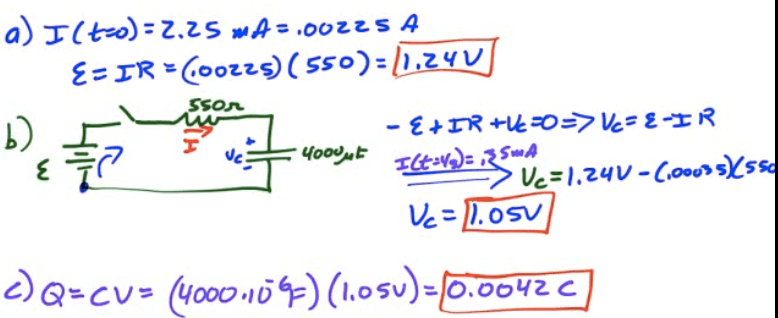 a) I(t=0) = 2.25 mA = .00225 A
ℰ = IR = (.00225)(550) = 1.24V
b)
550Ω
I
ℰ
Vc
+
-
4000μF
-ℰ + IR + Vc = 0 => Vc = ℰ - IR
I(t=4s) = .35mA
Vc = 1.24V - (.00035)(550
Vc = 1.05V
c) Q = CV = (4000·10⁻⁶F)(1.05V) = 0.0042 C